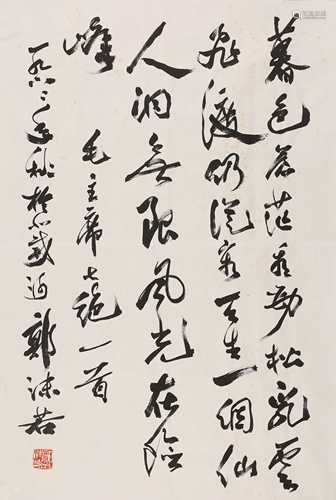 暮色蒼茫看勁松乱雲
飛渡仍從容天生一個仙
人洞無限風光在險
峰 毛主席七絕一首
一九六二年秋於 郭沫若